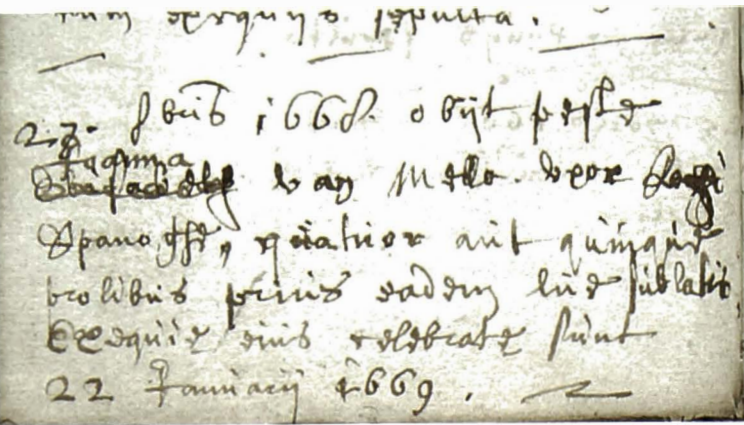 cum exequiis sepulta.
23. 8bris 1668. obiit peste
Joanna
van Melle. vxor
Spanoghe, quatuor aut quinque
prolibus prius eadem lue sublatis
Exequie eius celebrate sunt
22 Januarii 1669.